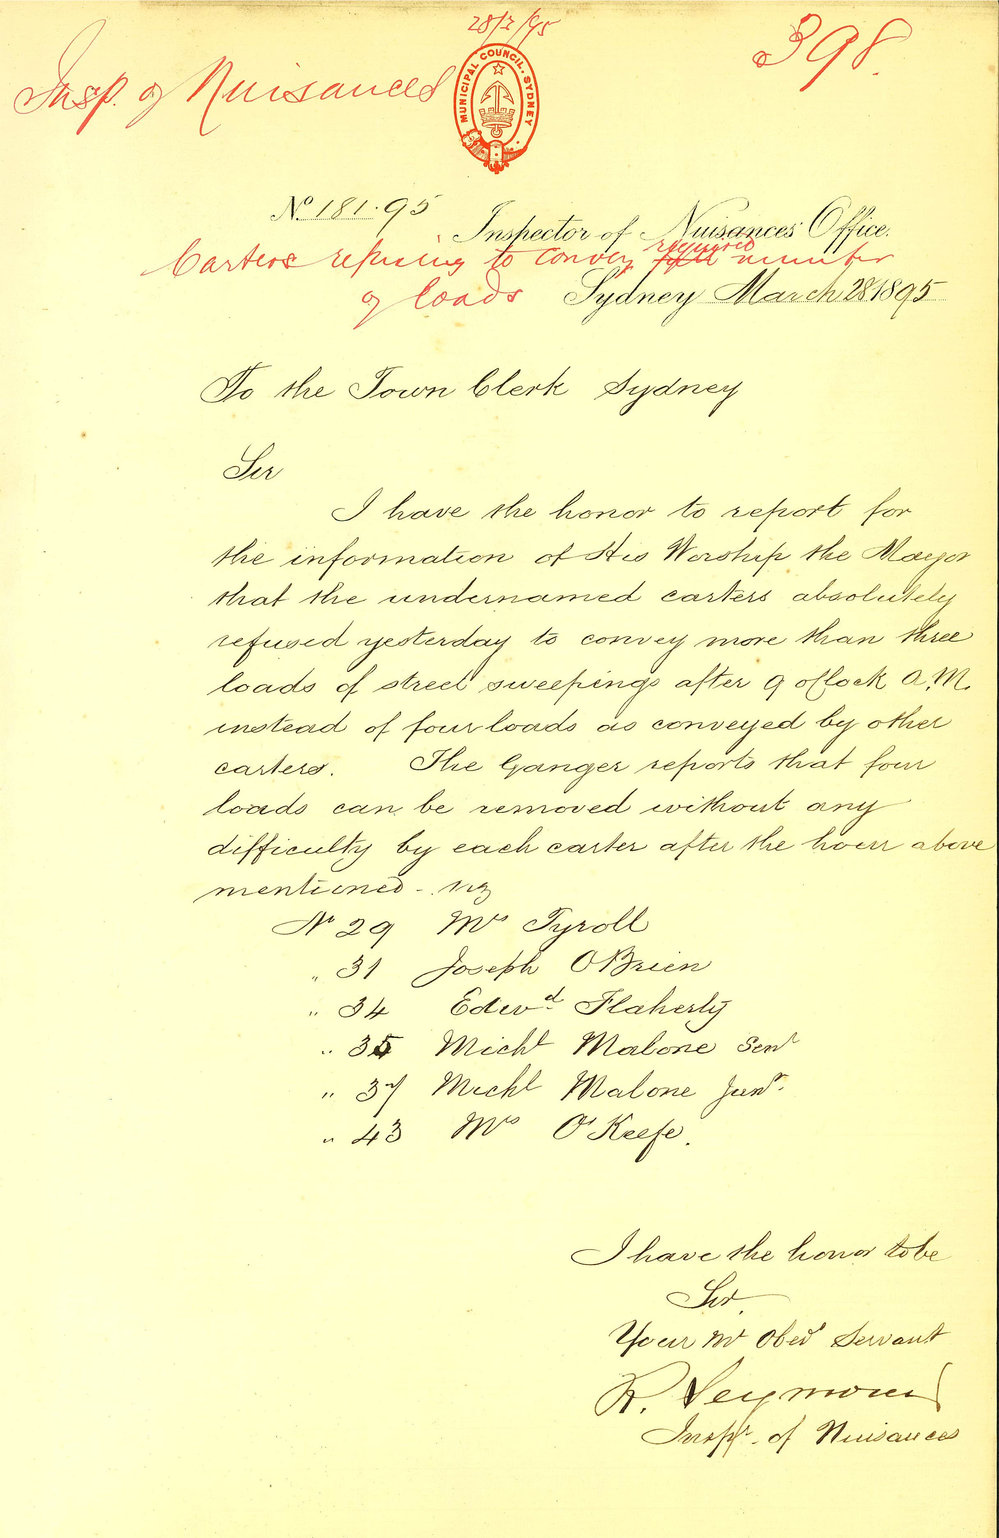 28/3/95
398.
Insp. of Nuisances
MUNICIPAL COUNCIL. SYDNEY
No 181.95
Inspector of Nuisances Office.
Carters refusing to convey required number
of loads
Sydney March 28 1895
To the Town Clerk Sydney
Sir
I have the honor to report for
the information of His Worship the Mayor
that the undernamed carters absolutely
refused yesterday to convey more than three
loads of street sweepings after 9 oClock A.M.
instead of four loads as conveyed by other
carters. The Ganger reports that four
loads can be removed without any
difficulty by each carter after the hour above
mentioned - viz
No 29 Mrs Tyroll
" 31 Joseph OBrien
" 34 Edwd Flaherty
" 35 Michl Malone Senr
" 37 Michl Malone Junr.
" 43 Mrs O'Keefe.
I have the honor to be
Sir.
Your Mt Obedt Servant
R. Seymour
Inspr. of Nuisances